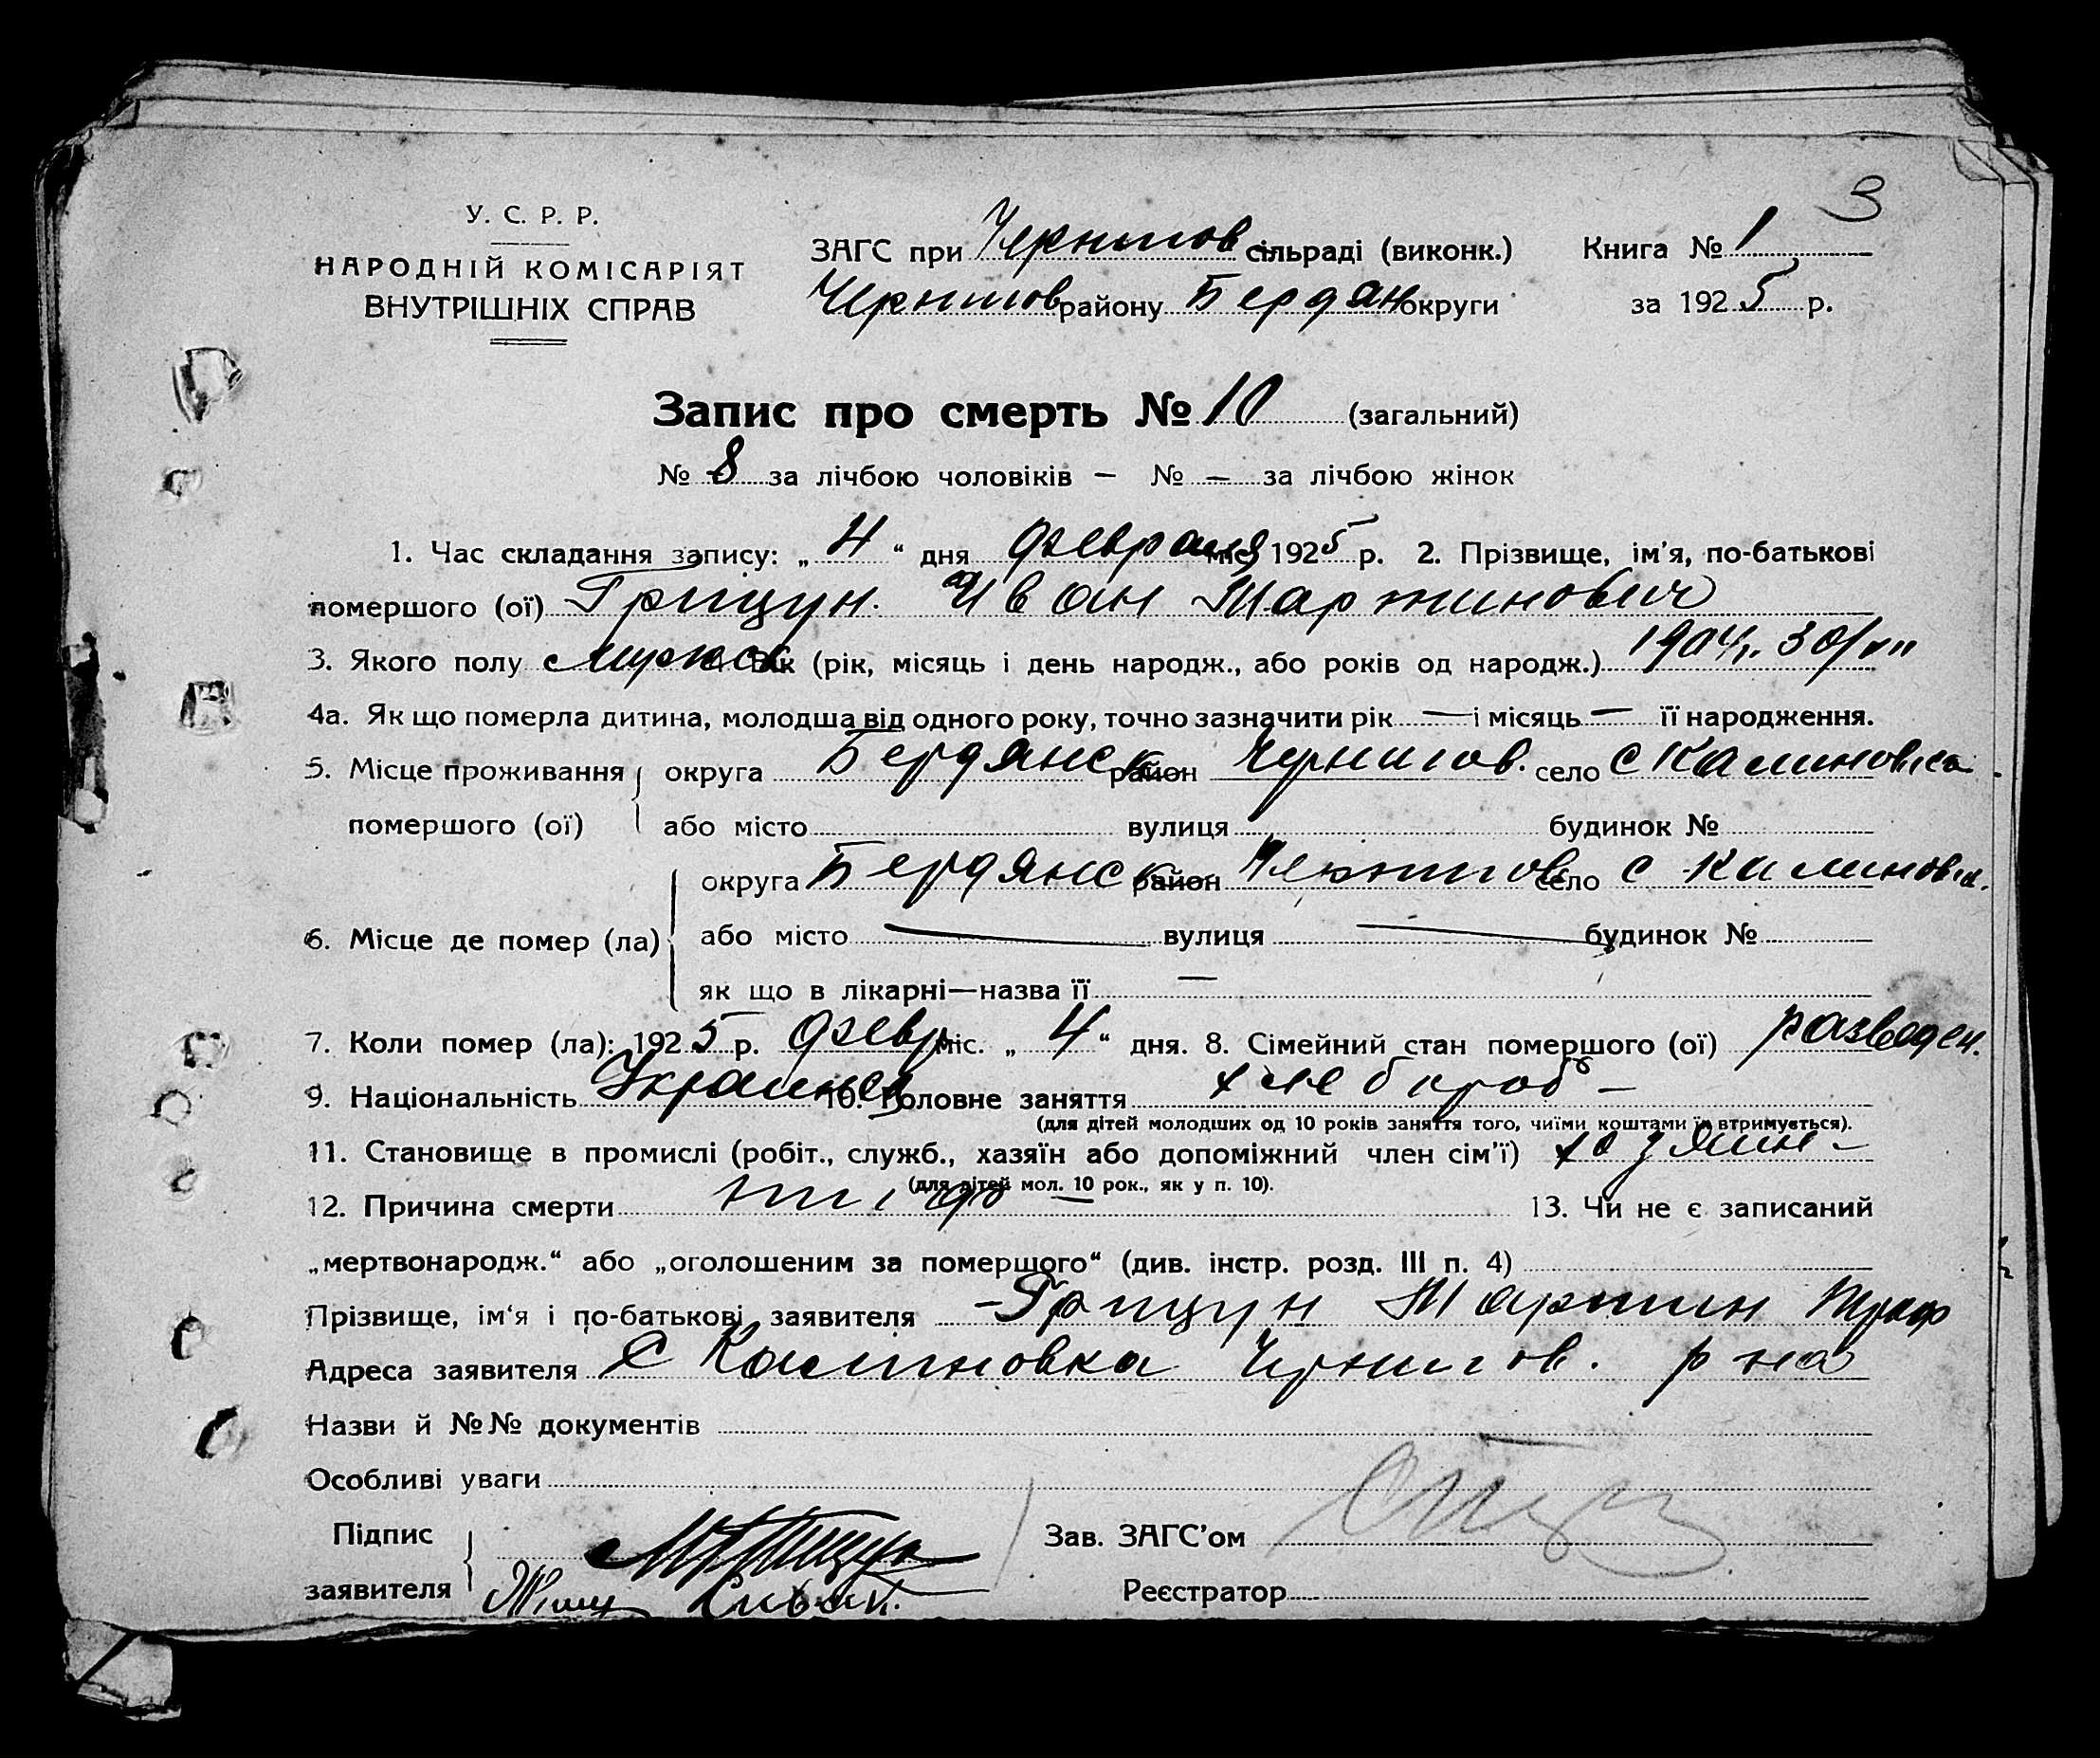 3
У. С. Р. Р.
НАРОДНІЙ КОМІСАРІЯТ
ВНУТРІШНІХ СПРАВ
ЗАГС при Чернигов сільраді (виконк.) Книга № 1
Чернигов району Бердян округи за 1925 р.
Запис про смерть № 10 (загальний)
№ 8 за лічбою чоловіків — № — за лічбою жінок
1. Час складання запису: „ 4 “ дня февраля міс. 1925 р. 2. Прізвище, ім’я, по-батькові
помершого (ої) Грицун Иван Мартинович
3. Якого полу мужск Вік (рік, місяць і день народж., або років од народж.) 1904г. 30/
4а. Як що померла дитина, молодша від одного року, точно зазначити рік — і місяць — її народження.
5. Місце проживання округа Бердянск район Чернигов. село с Калиновка
помершого (ої) або місто вулиця будинок №
округа Бердянск район Чернигов село с Калиновка.
6. Місце де помер (ла) або місто — вулиця — будинок №
як що в лікарні—назва її —
7. Коли помер (ла): 1925 р. февр міс. „ 4 “ дня. 8. Сімейний стан помершого (ої) разведен.
9. Національність Украинец 10. Головне заняття хлебороб —
(для дітей молодших од 10 років заняття того, чиїми коштами їх втримується).
11. Становище в промислі (робіт., служб., хазяїн або допоміжний член сім’ї) хозяин —
(для дітей мол. 10 рок., як у п. 10).
12. Причина смерти тиф — 13. Чи не є записаний
„мертвонародж.“ або „оголошеним за помершого“ (див. інстр. розд. III п. 4)
Прізвище, ім‘я і по-батькові заявителя — Грицун Мартин
Адреса заявителя с Калиновка Чернигов. р на
Назви й №№ документів
Особливі уваги
Підпис Зав. ЗАГС’ом
заявителя Реєстратор